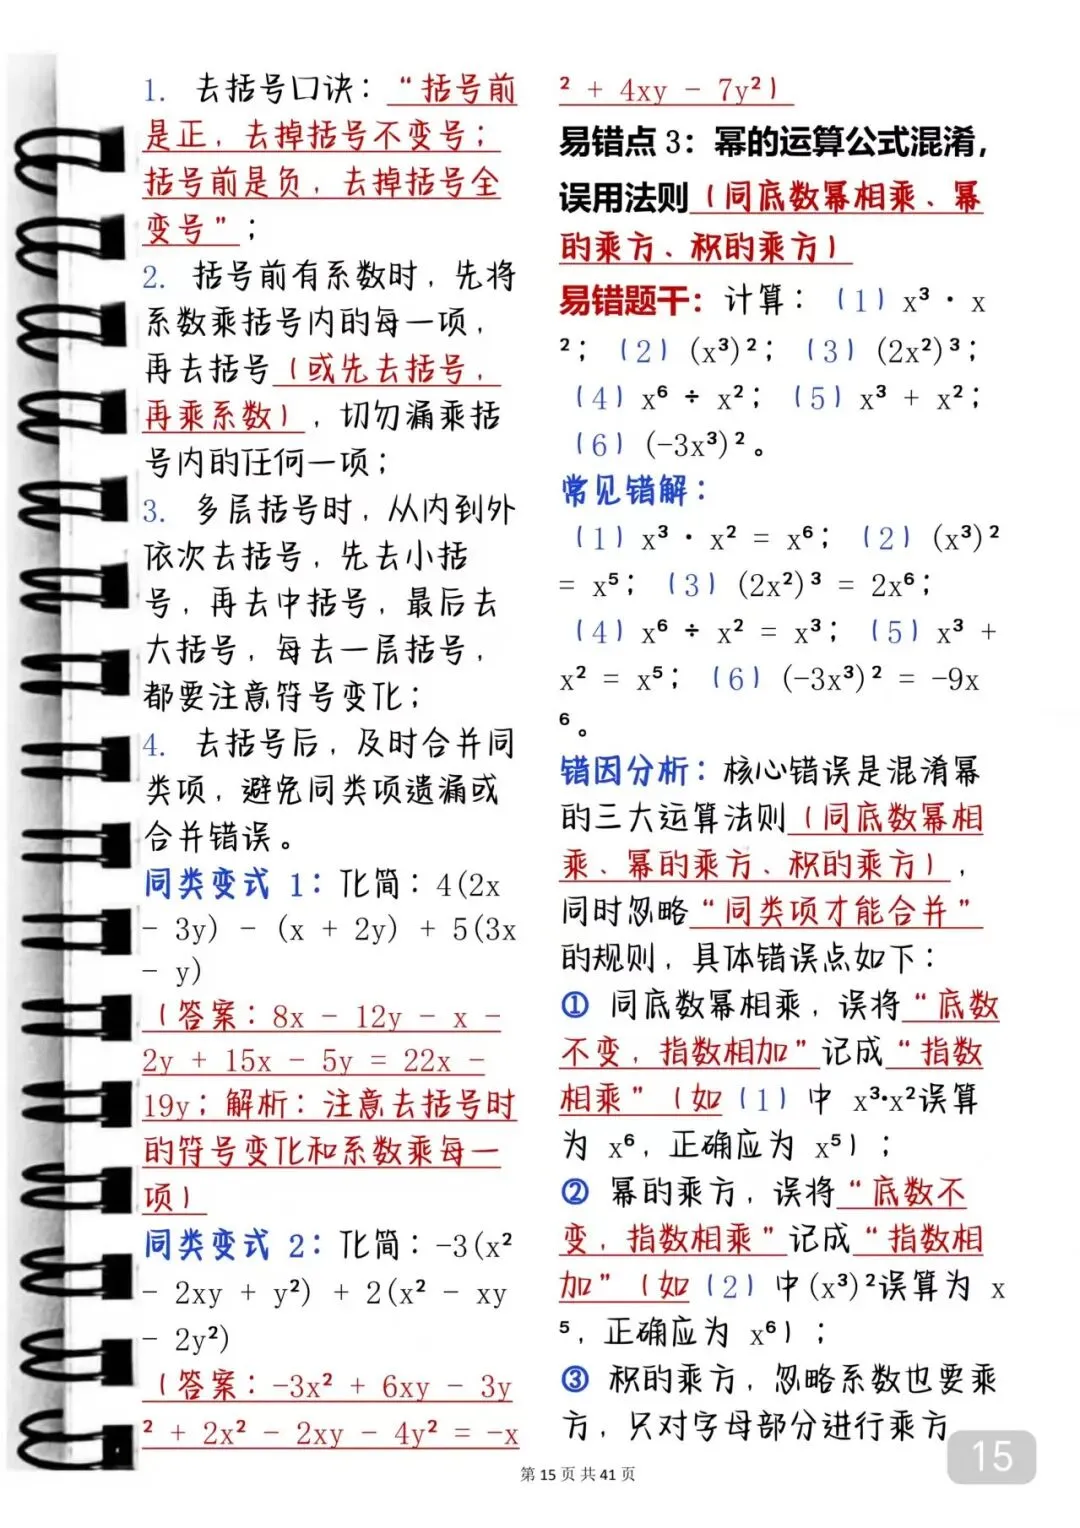 1. 去括号口诀：“括号前
是正，去掉括号不变号；
括号前是负，去掉括号全
变号”；
2. 括号前有系数时，先将
系数乘括号内的每一项，
再去括号（或先去括号，
再乘系数），切勿漏乘括
号内的任何一项；
3. 多层括号时，从内到外
依次去括号，先去小括
号，再去中括号，最后去
大括号，每去一层括号，
都要注意符号变化；
4. 去括号后，及时合并同
类项，避免同类项遗漏或
合并错误。
同类变式 1：化简：4(2x
- 3y) - (x + 2y) + 5(3x
- y)
（答案：8x - 12y - x -
2y + 15x - 5y = 22x -
19y；解析：注意去括号时
的符号变化和系数乘每一
项）
同类变式 2：化简：-3(x²
- 2xy + y²) + 2(x² - xy
- 2y²)
（答案：-3x² + 6xy - 3y
² + 2x² - 2xy - 4y² = -x
² + 4xy - 7y²）
易错点 3：幂的运算公式混淆，
误用法则（同底数幂相乘、幂
的乘方、积的乘方）
易错题干：计算：（1）x³ · x
²；（2）(x³)²；（3）(2x²)³；
（4）x⁶ ÷ x²；（5）x³ + x²；
（6）(-3x³)²。
常见错解：
（1）x³ · x² = x⁶；（2）(x³)²
= x⁵；（3）(2x²)³ = 2x⁶；
（4）x⁶ ÷ x² = x³；（5）x³ +
x² = x⁵；（6）(-3x³)² = -9x
⁶。
错因分析：核心错误是混淆幂
的三大运算法则（同底数幂相
乘、幂的乘方、积的乘方），
同时忽略“同类项才能合并”
的规则，具体错误点如下：
① 同底数幂相乘，误将“底数
不变，指数相加”记成“指数
相乘”（如（1）中 x³·x²误算
为 x⁶，正确应为 x⁵）；
② 幂的乘方，误将“底数不
变，指数相乘”记成“指数相
加”（如（2）中(x³)²误算为 x
⁵，正确应为 x⁶）；
③ 积的乘方，忽略系数也要乘
方，只对字母部分进行乘方
第 15 页 共 41 页
15